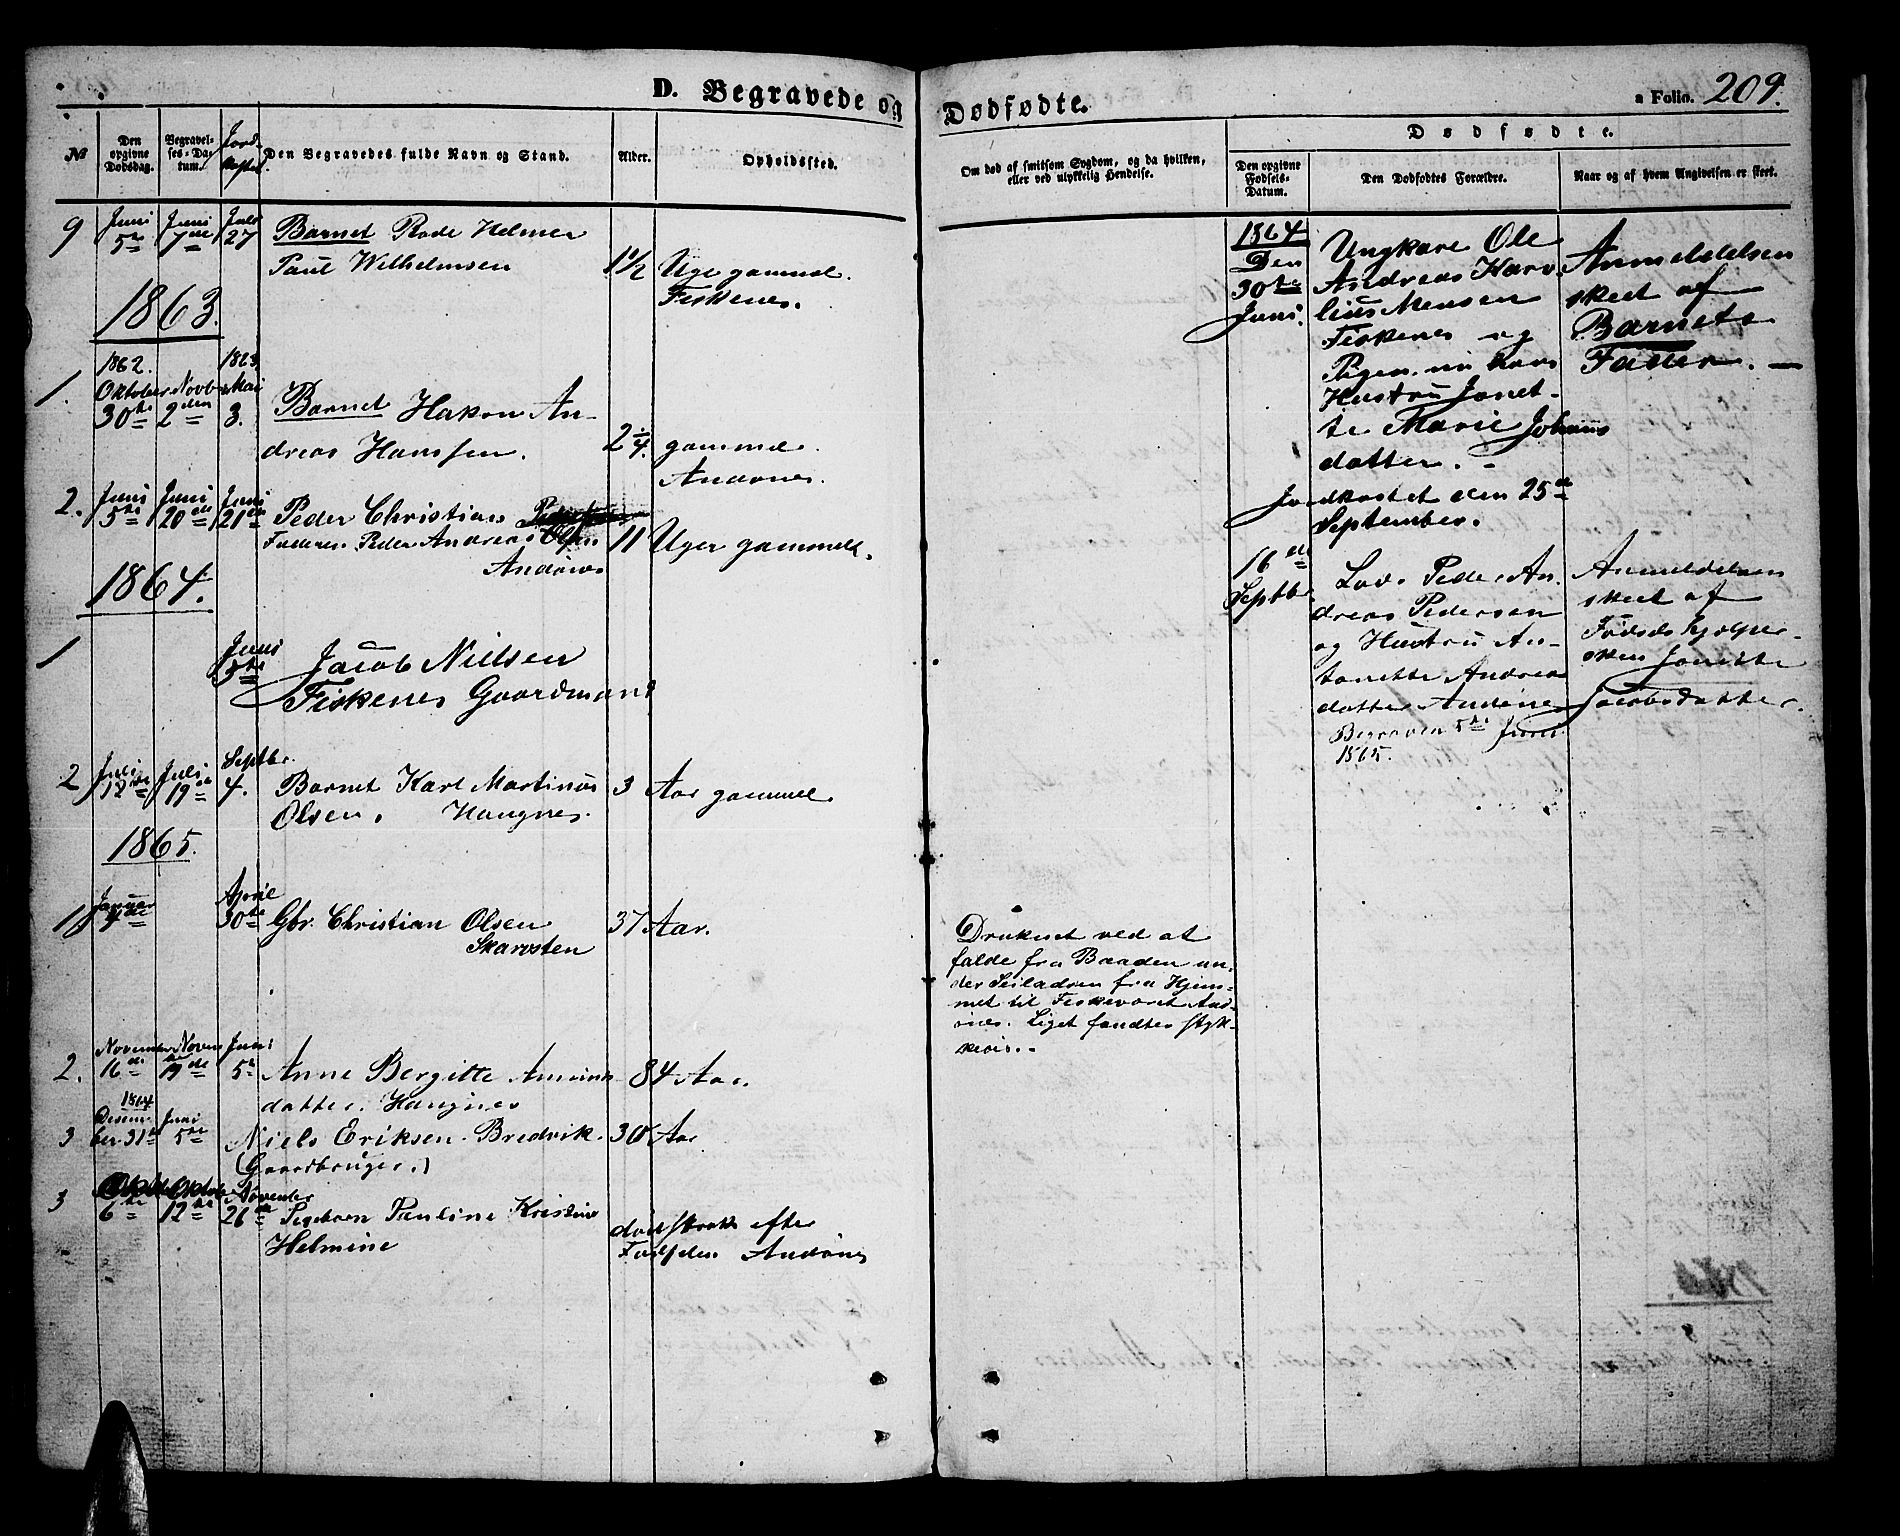 D. Begravede og Dødfødte.
a Folio. 209.
No
Den opgivne Dødsdag.
Begravelses-Datum.
Jordkastel.
Den Begravedes fulde Navn og Stand.
Alder.
Opholdssted.
Om død af smitsom Sygdom, og da hvilken,
eller ved ulykkelig Hendelse.
Dødfødte.
Den opgivne Fødsels-Datum.
Den Dødfødtes Forældre.
Naar og af hvem Angivelsen er skeet.
9 Juni 5te Juni 7de 27 Barnet Helmer
Paul Wilhelmsen 1 1/2 Uge gammel.
Fiskenes.
1863.
1862. 1863
1. Oktober 30te Novbr 2den Mai 3. Barnet Hakon An-
dreas Hanssen. 2 1/4 gammel.
Andønes.
2. Juni 5te Juni 20de Juni 21de Peder Christian
Faderen Peder Andreas Olsen 11 Uger gammel.
Andønes
1864.
1 Juni 5te Jacob Nielsen
Fiskenes Gaardmand
2 Juli 12te Juli 19de Septbr. 4. Barnet Karl Martinus 3 Aar gammel
Olsen. Haugnes.
1865.
1 Januar 4de April 30te Gbr. Christian Olsen 37 Aar.
Skarvsten
2. November 16de Novem 19de Juni 5te Anne Bergitte 84 Aar.
datter. Haugnes
1864
3 Desember 31te Juni 5te Niels Eriksen. Bredvik. Aar
(Gaardbruger.)
3 6te Oktob 12te November 26de Pigebarn Pauline Kristine
Helmine
død strax efter
Fødselen Andønes
Druknet ved at
falde fra Baaden un-
der Seiladsen fra Hjem-
met til Fiskeværet And-
enes. Liget fandtes styk-
kevis.
1864
Den
30te
Juni.
Ungkare Ole
Andreas Karo-
lius Monsen
Fiskenes og
Pigen nu hans
Hustru Janet-
te Marie Johannis
datter. -
Jordkastet den 25de
September.
Anmeldelsen
skeet af
Barnets
Fader. -
16de
Septbr.
Lov. Peder An-
dreas Pedersen
og Hustru An-
tonette Andreas
datter Andønes
Begraven 5te Juni
1865.
Anmeldelsen
skeet af
Fødselshjelper-
sken Janette
Jacobsdatter.